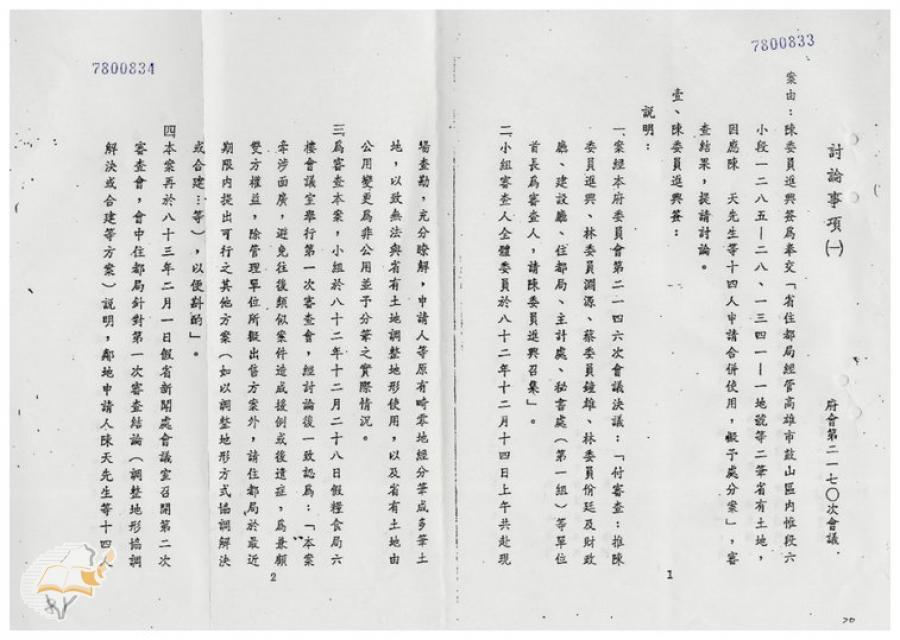 7800833
討論事項㈠
府會第二一七〇次會議.
案由：陳委員進興簽為奉交「省住都局經管高雄市鼓山區內惟段六
小段一二八五—二八、一三四一—一地號等二筆省有土地，
因應陳 天先生等十四人申請合併使用，擬予處分案」，審
查結果，提請討論。
壹、陳委員進興簽：
說明：
一、案經本府委員會第二一四六次會議決議：「付審查：推陳
委員進興、林委員淵源、蔡委員鐘雄、林委員佾廷及財政
廳、建設廳、住都局、主計處、秘書處（第一組）等單位
首長為審查人，請陳委員進興召集」。
二、小組審查人全體委員於八十二年十二月十四日上午共赴現
1
7800834
場查勘，充分瞭解，申請人等原有畸零地經分筆成多筆土
地，以致無法與省有土地調整地形使用，以及省有土地由
公用變更為非公用並予分筆之實際情況。
三、為審查本案，小組於八十二年十二月二十八日假糧食局六
樓會議室舉行第一次審查會，經討論後一致認為：「本案
牽涉面廣，避免往後類似案件造成援例或後遺症，為兼顧
雙方權益，除管理單位所擬出售方案外，請住都局於最近
期限內提出可行之其他方案（如以調整地形方式協調解決
或合建…等），以便斟酌」。
四、本案再於八十三年二月一日假省新聞處會議室召開第二次
審查會，會中住都局針對第一次審查結論（調整地形協調
解決或合建等方案）說明，鄰地申請人陳天先生等十四人
2